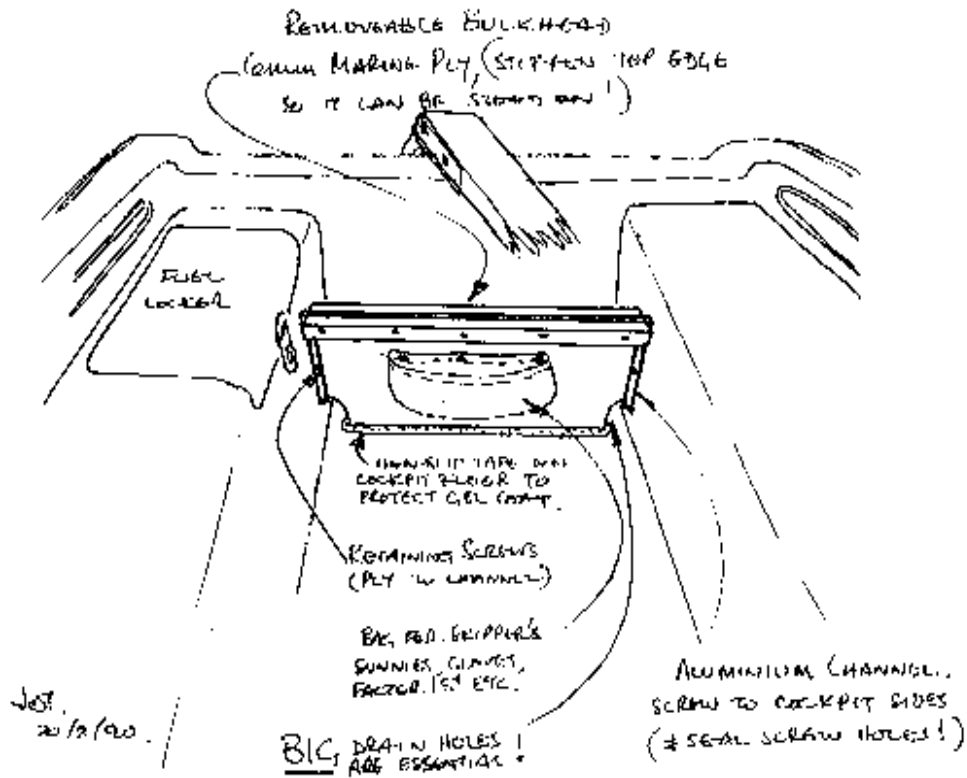 REMOVEABLE BULKHEAD
MARINE PLY, (STIFFEN TOP EDGE
SO IT CAN BE !)
FUEL
LOCKER
NON-SLIP TAPE ON
COCKPIT FLOOR TO
PROTECT GEL COAT.
RETAINING SCREWS
(PLY IN CHANNEL!)
BAG FOR SKIPPER'S
SUNNIES, GLOVES,
FACTOR ETC.
BIG DRAIN HOLES
ARE ESSENTIAL!
ALUMINIUM CHANNEL.
SCREW TO COCKPIT SIDES
(& SEAL SCREW HOLES!)